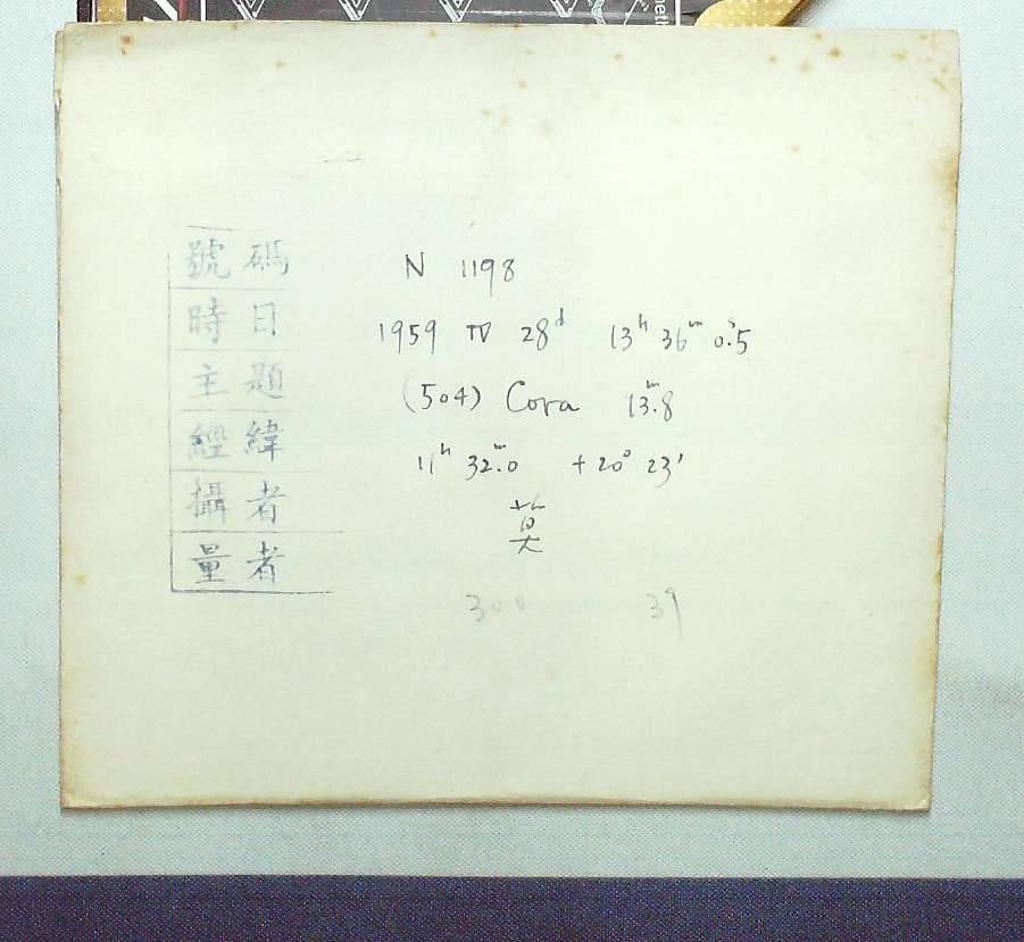 號碼 N 1198
時日 1959 IV 28ᵈ 13ʰ 36ᵐ 0ˢ.5
主題 (504) Cora 13ᵐ.8
經緯 11ʰ 32ᵐ.0 +20° 23'
攝者 莫
量者
300 39